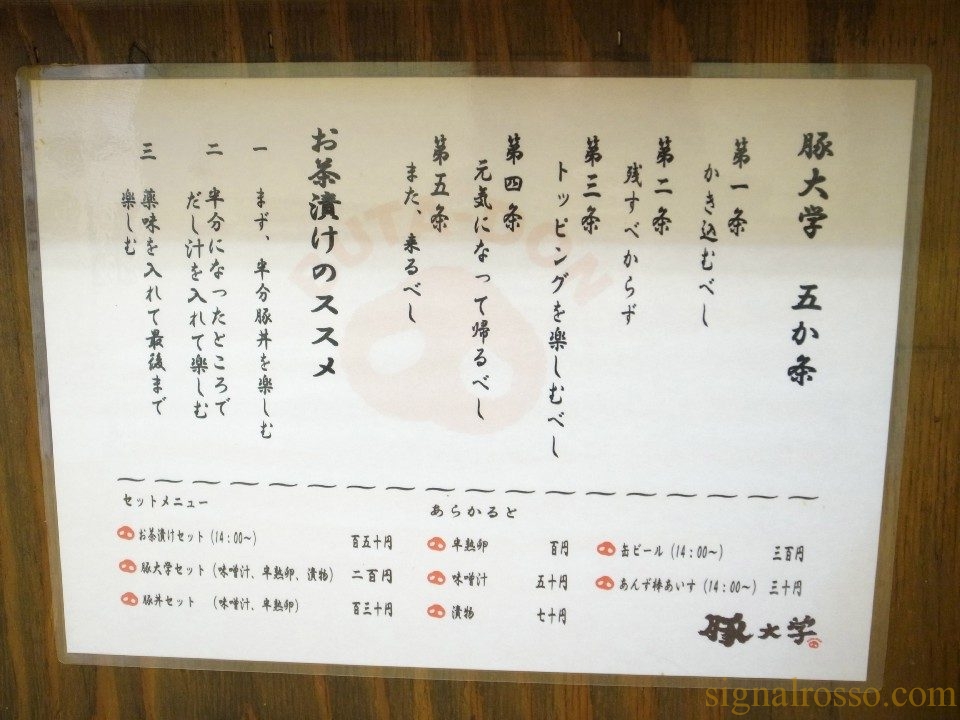 豚大学 五か条
第一条
かき込むべし
第二条
残すべからず
第三条
トッピングを楽しむべし
第四条
元気になって帰るべし
第五条
また、来るべし
お茶漬けのススメ
一 まず、半分豚丼を楽しむ
二 半分になったところで
だし汁を入れて楽しむ
三 薬味を入れて最後まで
楽しむ
BUTA-DON
セットメニュー
お茶漬けセット(14:00〜) 百五十円
豚大学セット(味噌汁、半熟卵、漬物) 二百円
豚丼セット (味噌汁、半熟卵) 百三十円
あらかると
半熟卵 百円
味噌汁 五十円
漬物 七十円
缶ビール(14:00〜) 三百円
あんず棒あいす(14:00〜) 三十円
豚大学
signalrosso.com